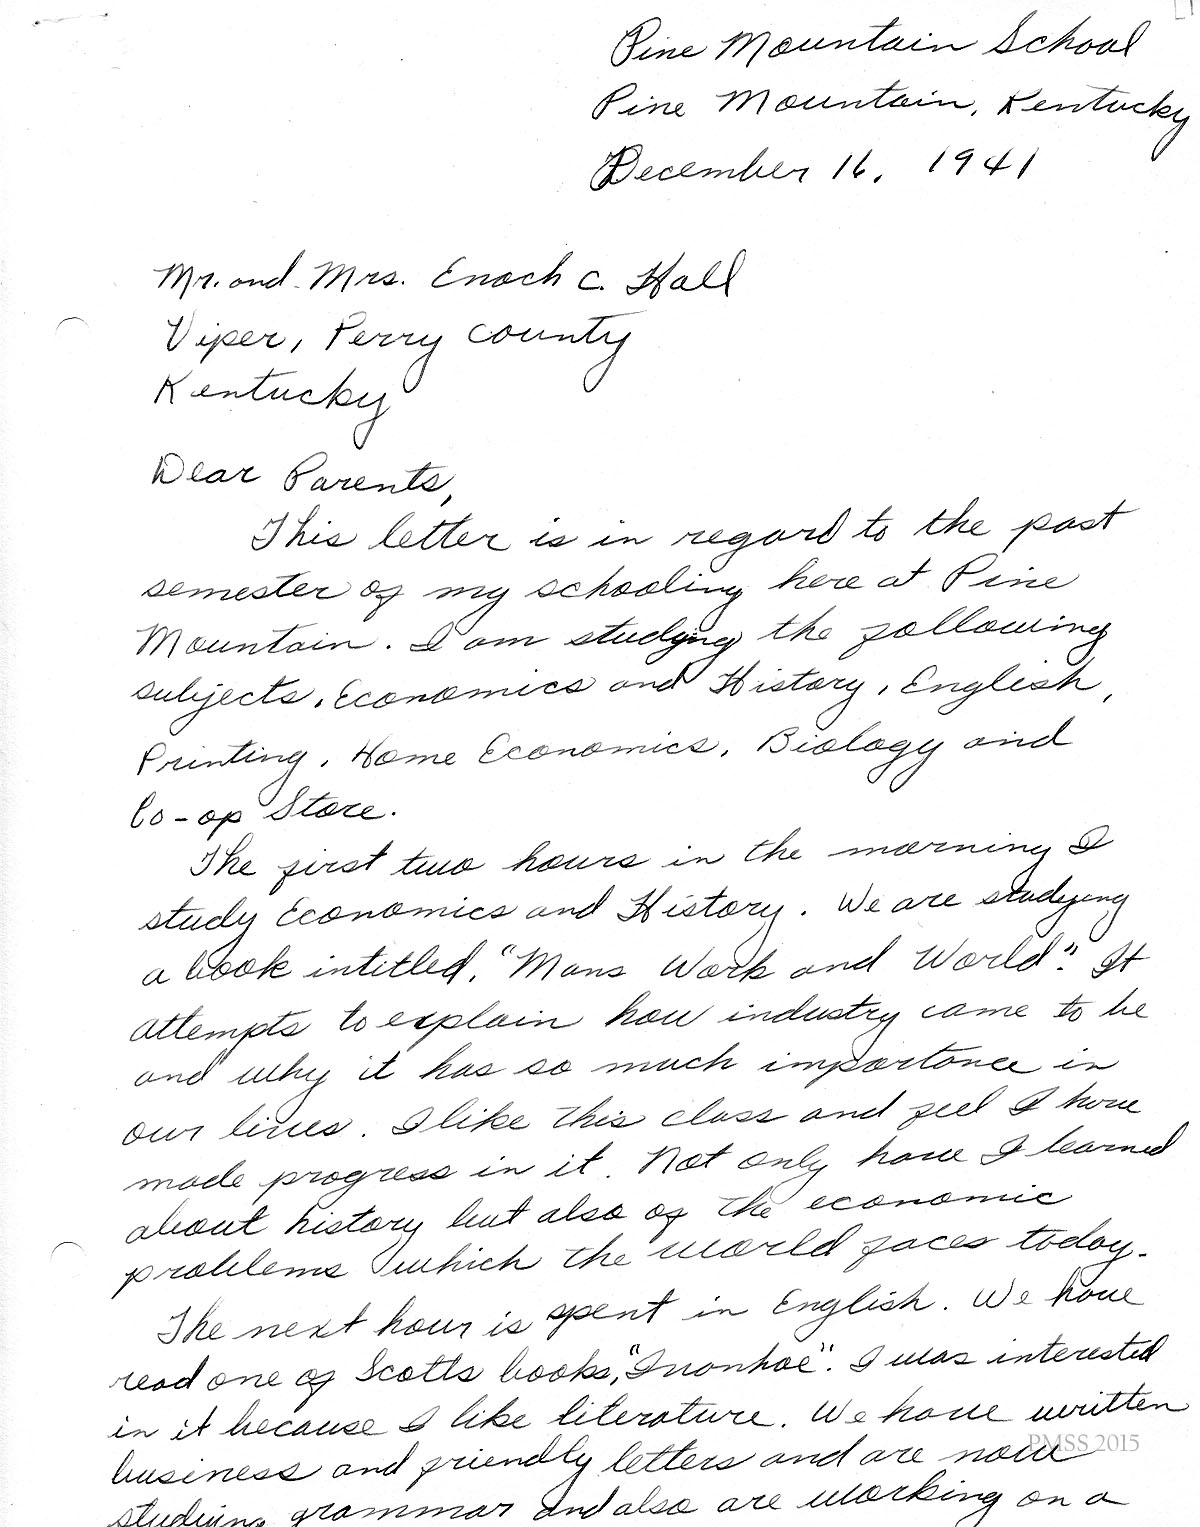 Pine Mountain School
Pine Mountain, Kentucky
December 16, 1941
Mr. and Mrs. Enoch C. Hall
Viper, Perry County
Kentucky
Dear Parents,
This letter is in regard to the past
semester of my schooling here at Pine
Mountain. I am studying the following
subjects, Economics and History, English,
Printing, Home Economics, Biology and
Co-op Store.
The first two hours in the morning I
study Economics and History. We are studying
a book intitled, "Mans Work and World". It
attempts to explain how industry came to be
and why it has so much importance in
our lives. I like this class and feel I have
made progress in it. Not only have I learned
about history but also of the economic
problems which the world faces today.
The next hour is spent in English. We have
read one of Scotts books, "Ivanhoe". I was interested
in it because I like literature. We have written
business and friendly letters and are now
studying grammar and also are working on a
PMSS 2015